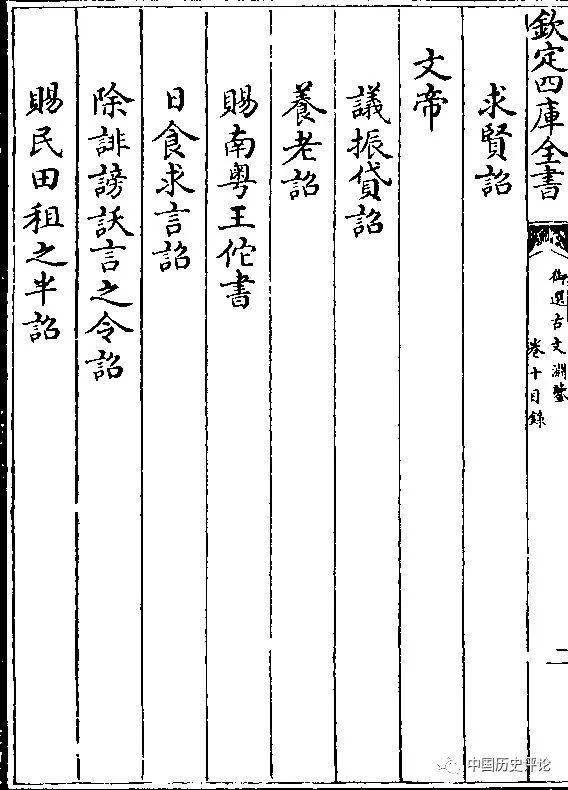 欽定四庫全書
御選古文淵鑒
卷十目錄
二
求賢詔
文帝
議振貸詔
養老詔
賜南粵王佗書
日食求言詔
除誹謗訞言之令詔
賜民田租之半詔
中国历史评论